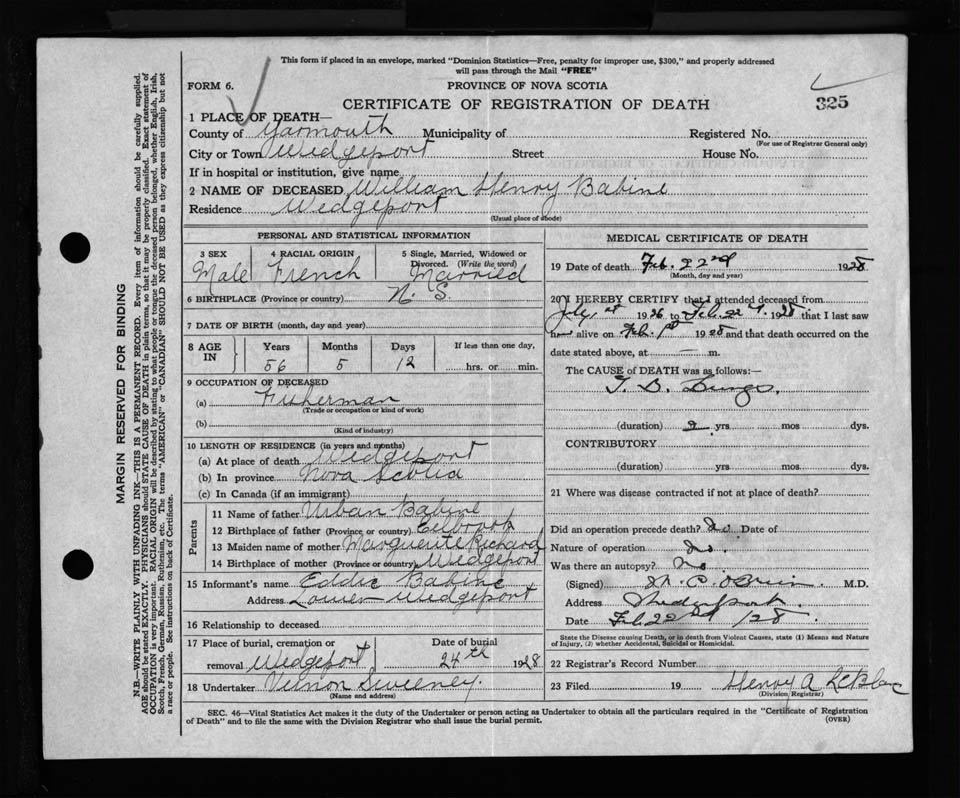 This form if placed in an envelope, marked "Dominion Statistics—Free, penalty for improper use, $300," and properly addressed
will pass through the Mail "FREE"
FORM 6. PROVINCE OF NOVA SCOTIA
CERTIFICATE OF REGISTRATION OF DEATH 325
1 PLACE OF DEATH—
County of Yarmouth Municipality of Registered No.
(For use of Registrar General only)
City or Town Wedgeport Street House No.
If in hospital or institution, give name
2 NAME OF DECEASED William Henry Babine
Residence Wedgeport
(Usual place of abode)
PERSONAL AND STATISTICAL INFORMATION
3 SEX 4 RACIAL ORIGIN 5 Single, Married, Widowed or
Divorced. (Write the word)
Male French Married
6 BIRTHPLACE (Province or country) N. S.
7 DATE OF BIRTH (month, day and year)
8 AGE IN Years Months Days If less than one day,
56 5 12 hrs. or min.
9 OCCUPATION OF DECEASED
(a) Fisherman
(Trade or occupation or kind of work)
(b)
(Kind of industry)
10 LENGTH OF RESIDENCE (in years and months)
(a) At place of death Wedgeport
(b) In province Nova Scotia
(c) In Canada (if an immigrant)
Parents
11 Name of father Urban Babine
12 Birthplace of father (Province or country) Eelbrook
13 Maiden name of mother Marguerite Richard
14 Birthplace of mother (Province or country) Wedgeport
15 Informant's name Eddie Babine
Address Lower Wedgeport
16 Relationship to deceased
17 Place of burial, cremation or Date of burial
removal Wedgeport 24th 1928
18 Undertaker Vernon Sweeney.
(Name and address)
MEDICAL CERTIFICATE OF DEATH
19 Date of death Feb. 22nd 1928.
(Month, day and year)
20 I HEREBY CERTIFY that I attended deceased from
July 1st 1926 to Feb. 22 1928 that I last saw
him alive on Feb. 1st 1928 and that death occurred on the
date stated above, at — m.
The CAUSE of DEATH was as follows:—
T. B. Lungs.
(duration) 2 yrs mos dys.
CONTRIBUTORY
(duration) yrs mos dys.
21 Where was disease contracted if not at place of death?
Did an operation precede death? No Date of
Nature of operation No.
Was there an autopsy? No
(Signed) M. C. O'Brien. M.D.
Address Wedgeport.
Date Feb. 22nd /28
State the Disease causing Death, or in death from Violent Causes, state (1) Means and Nature
of Injury, (2) whether Accidental, Suicidal or Homicidal.
22 Registrar's Record Number
23 Filed 19 Henry A LeBlanc
(Division Registrar)
SEC. 46—Vital Statistics Act makes it the duty of the Undertaker or person acting as Undertaker to obtain all the particulars required in the "Certificate of Registration
of Death" and to file the same with the Division Registrar who shall issue the burial permit. (OVER)
MARGIN RESERVED FOR BINDING
N.B.—WRITE PLAINLY WITH UNFADING INK—THIS IS A PERMANENT RECORD. Every item of information should be carefully supplied.
AGE should be stated EXACTLY. PHYSICIANS should STATE CAUSE OF DEATH in plain terms, so that it may be properly classified. Exact statement of
OCCUPATION is very important. RACIAL ORIGIN will be described by stating to what people or tongue the deceased person belonged, whether English, Irish,
Scotch, French, German, Russian, Ruthenian, etc. The terms "AMERICAN" or "CANADIAN" SHOULD NOT BE USED as they express citizenship but not
a race or people. See instructions on back of Certificate.